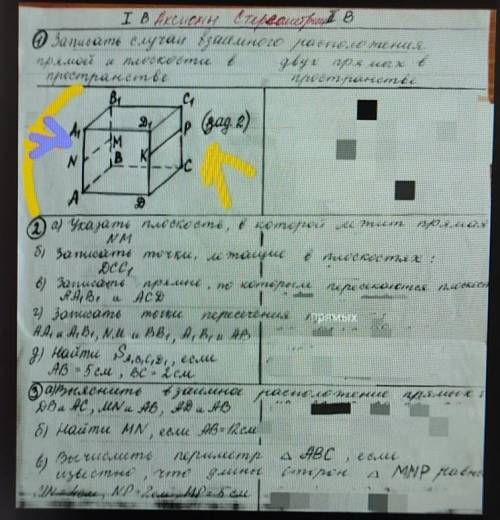 I В Аксиомы Стереометрии II В
① Записать случаи взаимного расположения
прямой и плоскости в двух прямых в
пространстве пространстве
B₁ C₁
A₁ D₁ P (зад.2)
M
N B K C
A D
② а) Указать плоскость, в которой лежит прямая
NM
б) Записать точки, лежащие в плоскостях:
DCC₁
в) Записать прямые, по которым пересекаются
AA₁B₁ и ACD
г) Записать точки пересечения прямых
AA₁ и A₁B₁, NM и BB₁, A₁B₁ и AB
д) Найти S, если
AB = 5см, BC = 2см
③ а) Выяснить взаимное расположение прямых
DB и AC, MN и AB, AD и AB
б) Найти MN, если AB=12см
в) Вычислить периметр △ ABC, если
известно, что длины сторон △ MNP
NP = 2см, MP = 5 см